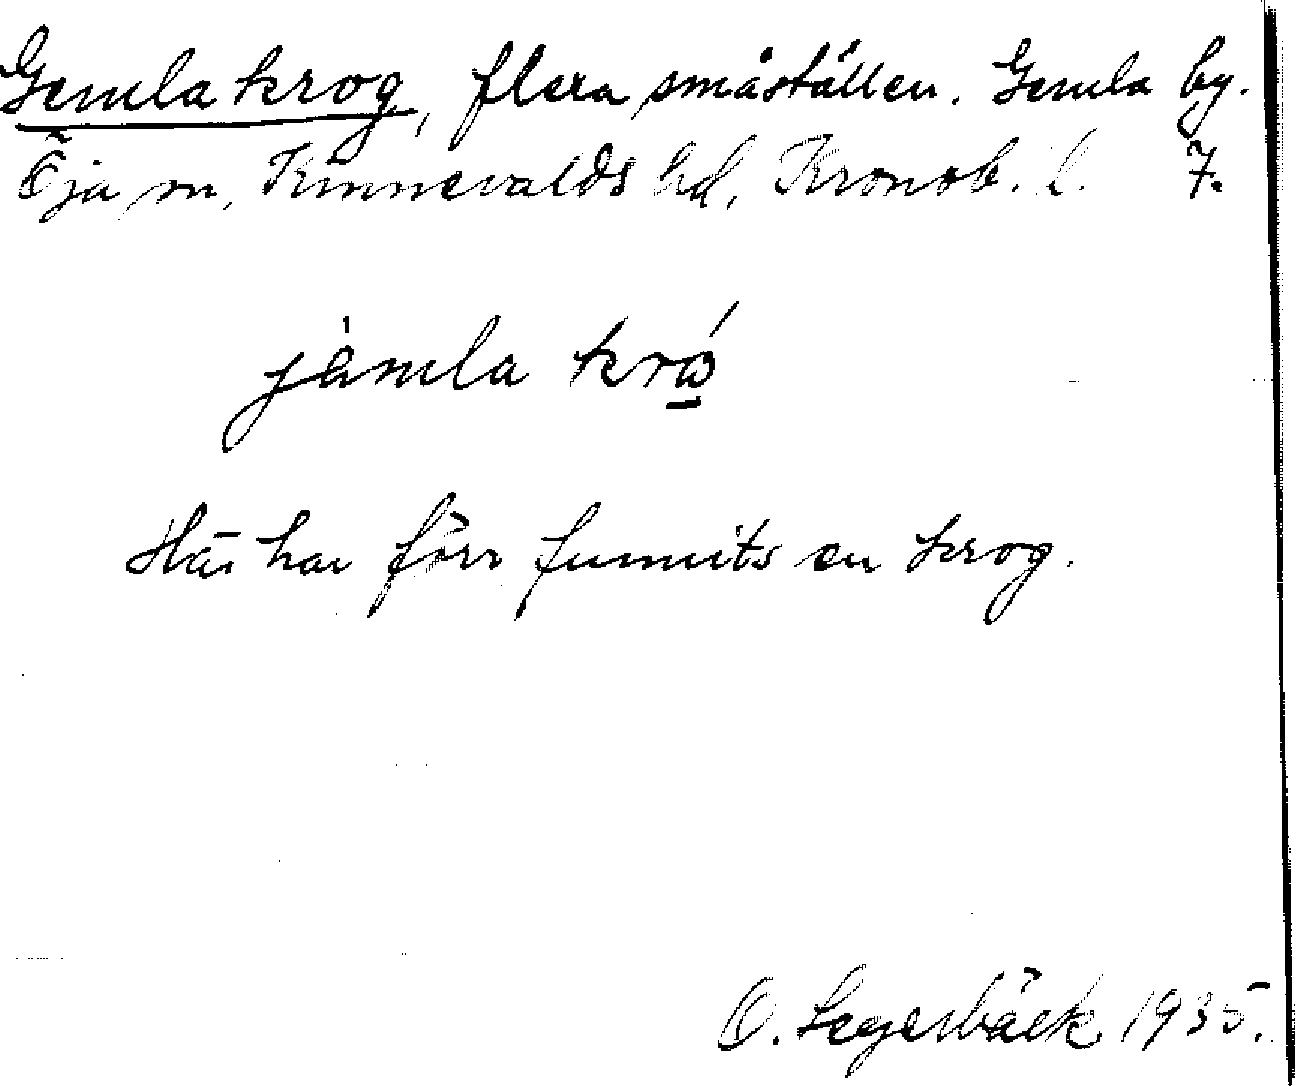 Gemla krog, flera småställen. Gemla by.
Öja sn, Kinnevalds hd, Kronob. l. 7.
jàmla kró
Här har förr funnits en krog.
O. Segerbäck 1935.